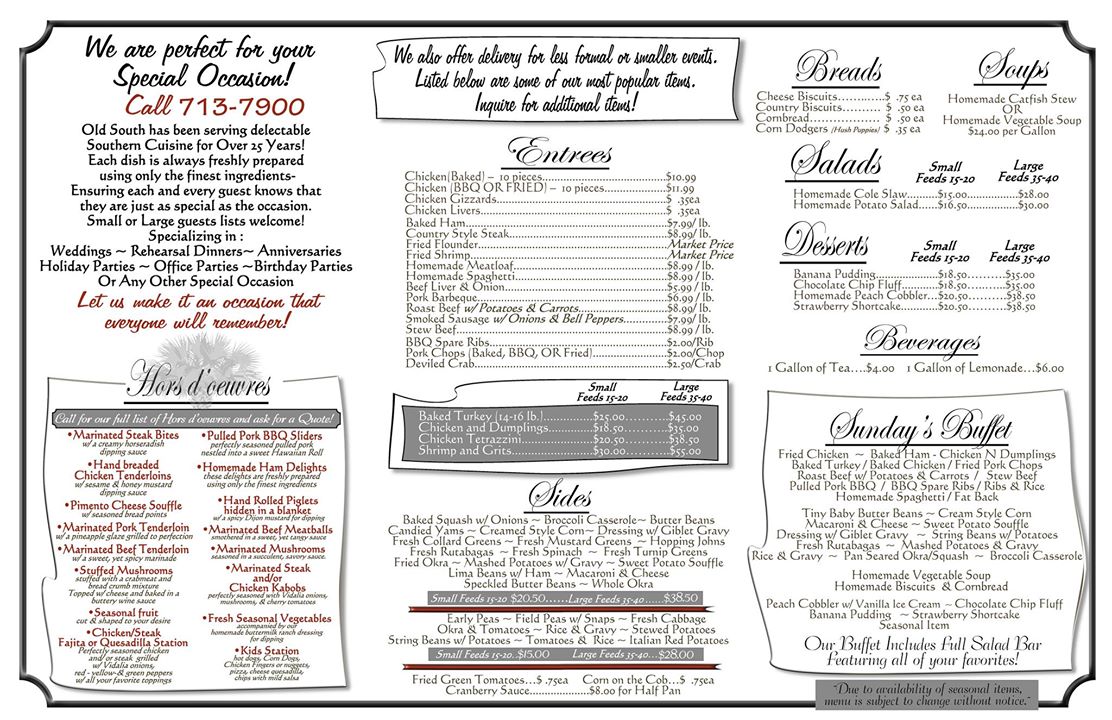 We are perfect for your
Special Occasion!
Call 713-7900
Old South has been serving delectable
Southern Cuisine for Over 25 Years!
Each dish is always freshly prepared
using only the finest ingredients-
Ensuring each and every guest knows that
they are just as special as the occasion.
Small or Large guests lists welcome!
Specializing in :
Weddings ~ Rehearsal Dinners~ Anniversaries
Holiday Parties ~ Office Parties ~Birthday Parties
Or Any Other Special Occasion
Let us make it an occasion that
everyone will remember!
Hors d'oeuvres
Call for our full list of Hors d'oeuvres and ask for a Quote!
•Marinated Steak Bites
w/ a creamy horseradish
dipping sauce
•Hand breaded
Chicken Tenderloins
w/ sesame & honey mustard
dipping sauce
•Pimento Cheese Souffle
w/ seasoned bread points
•Marinated Pork Tenderloin
w/ a pineapple glaze grilled to perfection
•Marinated Beef Tenderloin
w/ a sweet, yet spicy marinade
•Stuffed Mushrooms
stuffed with a crabmeat and
bread crumb mixture
Topped w/ cheese and baked in a
buttery wine sauce
•Seasonal fruit
cut & shaped to your desire
•Chicken/Steak
Fajita or Quesadilla Station
Perfectly seasoned chicken
and/or steak grilled
w/ Vidalia onions,
red - yellow-& green peppers
w/ all your favorite toppings
•Pulled Pork BBQ Sliders
perfectly seasoned pulled pork
nestled into a sweet Hawaiian Roll
•Homemade Ham Delights
these delights are freshly prepared
using only the finest ingredients
•Hand Rolled Piglets
hidden in a blanket
w/ a spicy Dijon mustard for dipping
•Marinated Beef Meatballs
smothered in a sweet, yet tangy sauce
•Marinated Mushrooms
seasoned in a succulent, savory sauce.
•Marinated Steak
and/or
Chicken Kabobs
perfectly seasoned with Vidalia onions,
mushrooms, & cherry tomatoes
•Fresh Seasonal Vegetables
accompanied by our
homemade buttermilk ranch dressing
for dipping
•Kids Station
hot dogs, Corn Dogs,
Chicken Fingers or nuggets,
pizza, cheese quesadilla,
chips with mild salsa
We also offer delivery for less formal or smaller events.
Listed below are some of our most popular items.
Inquire for additional items!
Entrees
Chicken(Baked) – 10 pieces.......................$10.99
Chicken (BBQ OR FRIED) – 10 pieces.......................$11.99
Chicken Gizzards.......................$ .35ea
Chicken Livers.......................$ .35ea
Baked Ham.......................$7.99/ lb.
Country Style Steak.......................$8.99/ lb.
Fried Flounder.......................Market Price
Fried Shrimp.......................Market Price
Homemade Meatloaf.......................$8.99 / lb.
Homemade Spaghetti.......................$8.99 / lb.
Beef Liver & Onion.......................$5.99 / lb.
Pork Barbeque.......................$6.99 / lb.
Roast Beef w/ Potatoes & Carrots.......................$8.99/ lb.
Smoked Sausage w/ Onions & Bell Peppers............$7.99/ lb.
Stew Beef.......................$8.99/ lb.
BBQ Spare Ribs.......................$2.00/Rib
Pork Chops (Baked, BBQ, OR Fried).......................$2.00/Chop
Deviled Crab.......................$2.50/Crab
Small
Feeds 15-20
Large
Feeds 35-40
Baked Turkey (14-16 lb.)............$25.00............$45.00
Chicken and Dumplings............$18.50............$35.00
Chicken Tetrazzini............$20.50............$38.50
Shrimp and Grits............$30.00............$55.00
Sides
Baked Squash w/ Onions ~ Broccoli Casserole~ Butter Beans
Candied Yams ~ Creamed Style Corn~ Dressing w/ Giblet Gravy
Fresh Collard Greens ~ Fresh Mustard Greens ~ Hopping Johns
Fresh Rutabagas ~ Fresh Spinach ~ Fresh Turnip Greens
Fried Okra ~ Mashed Potatoes w/ Gravy ~ Sweet Potato Souffle
Lima Beans w/ Ham ~ Macaroni & Cheese
Speckled Butter Beans ~ Whole Okra
Small Feeds 15-20 $20.50......Large Feeds 35-40.....$38.50
Early Peas ~ Field Peas w/ Snaps ~ Fresh Cabbage
Okra & Tomatoes ~ Rice & Gravy ~ Stewed Potatoes
String Beans w/ Potatoes ~ Tomatoes & Rice ~ Italian Red Potatoes
Small Feeds 15-20..$15.00 Large Feeds 35-40...$28.00
Fried Green Tomatoes...$ .75ea Corn on the Cob...$ .75ea
Cranberry Sauce...............$8.00 for Half Pan
Breads
Cheese Biscuits............$ .75 ea
Country Biscuits.......... $ .50 ea
Cornbread.................. $ .50 ea
Corn Dodgers (Hush Puppies) $ .35 ea
Soups
Homemade Catfish Stew
OR
Homemade Vegetable Soup
$24.00 per Gallon
Salads
Small
Feeds 15-20
Large
Feeds 35-40
Homemade Cole Slaw.......$15.00............$28.00
Homemade Potato Salad......$16.50............$30.00
Desserts
Small
Feeds 15-20
Large
Feeds 35-40
Banana Pudding...............$18.50..........$35.00
Chocolate Chip Fluff..........$18.50..........$35.00
Homemade Peach Cobbler...$20.50..........$38.50
Strawberry Shortcake..........$20.50..........$38.50
Beverages
1 Gallon of Tea....$4.00 1 Gallon of Lemonade...$6.00
Sunday's Buffet
Fried Chicken ~ Baked Ham - Chicken N Dumplings
Baked Turkey / Baked Chicken / Fried Pork Chops
Roast Beef w/ Potatoes & Carrots / Stew Beef
Pulled Pork BBQ / BBQ Spare Ribs / Ribs & Rice
Homemade Spaghetti / Fat Back
Tiny Baby Butter Beans ~ Cream Style Corn
Macaroni & Cheese ~ Sweet Potato Souffle
Dressing w/ Giblet Gravy ~ String Beans w/ Potatoes
Fresh Rutabagas ~ Mashed Potatoes & Gravy
Rice & Gravy ~ Pan Seared Okra/Squash ~ Broccoli Casserole
Homemade Vegetable Soup
Homemade Biscuits & Cornbread
Peach Cobbler w/ Vanilla Ice Cream ~ Chocolate Chip Fluff
Banana Pudding ~ Strawberry Shortcake
Seasonal Item
Our Buffet Includes Full Salad Bar
Featuring all of your favorites!
"Due to availability of seasonal items,
menu is subject to change without notice."